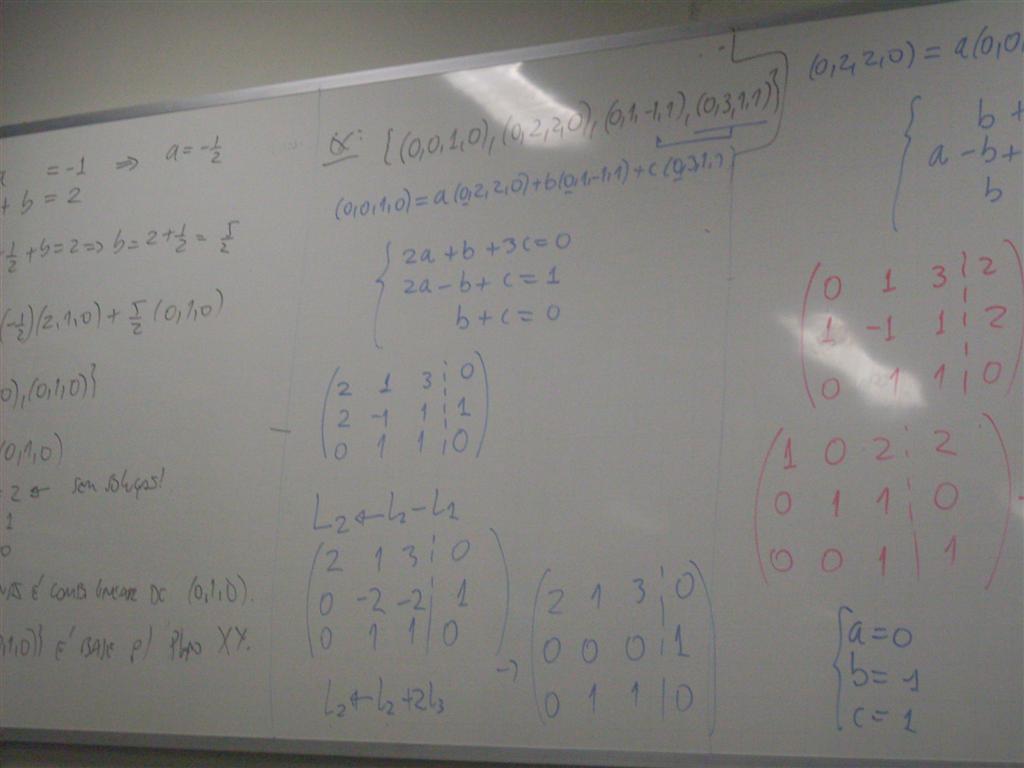 = -1 ⇒ a = -1/2
+ b = 2
-1/2 + b = 2 ⇒ b = 2 + 1/2 = 5/2
(-1/2)(2,1,0) + 5/2 (0,1,0)
0),(0,1,0)}
(0,1,0)
2 ← sem solução!
1
0
É COMB. LINEAR DE (0,1,0).
1,0)} É BASE P/ PLANO XY.
EX: {(0,0,1,0), (0,2,2,0), (0,1,-1,1), (0,3,1,1)}
(0,0,1,0) = a(0,2,2,0) + b(0,1,-1,1) + c(0,3,1,1)
2a + b + 3c = 0
2a - b + c = 1
b + c = 0
2 1 3 0
2 -1 1 1
0 1 1 0
L2 ← L2 - L1
2 1 3 0
0 -2 -2 1
0 1 1 0
L2 ← L2 + 2L3
→
2 1 3 0
0 0 0 1
0 1 1 0
(0,2,2,0) = a(0,0,
b +
a - b +
b
0 1 3 2
1 -1 1 2
0 1 1 0
1 0 2 2
0 1 1 0
0 0 1 1
a = 0
b = -1
c = 1